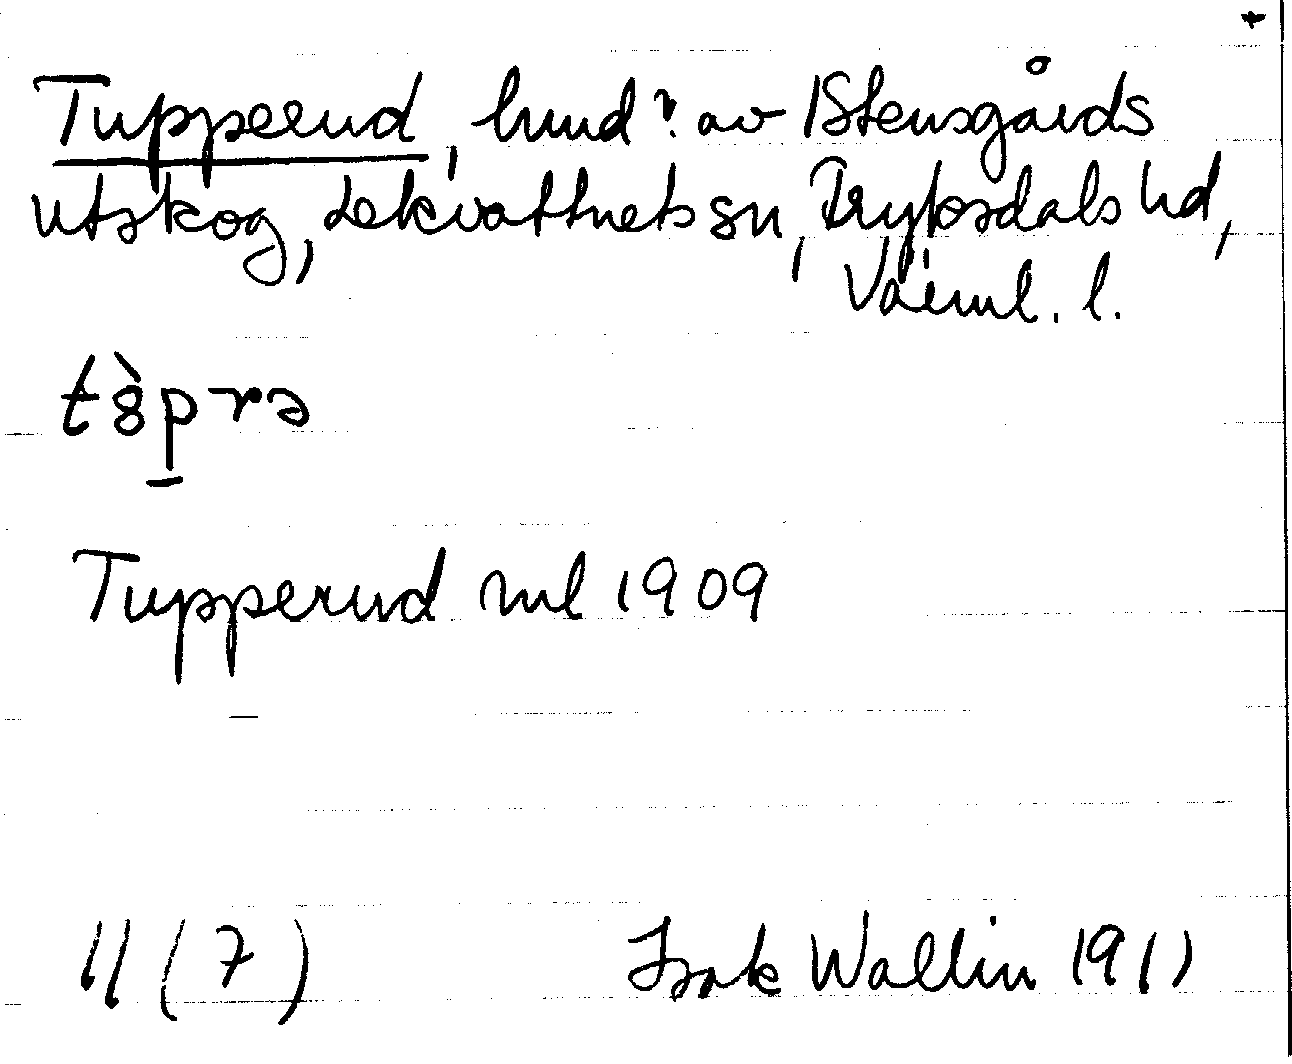 Tupperud, hmd? av Stensgårds
utskog, Lekvattnets sn, Fryksdals hd,
Värml. l.
tȍp̠rə
Tupperud ml 1909
11 (7) Isak Wallin 1911